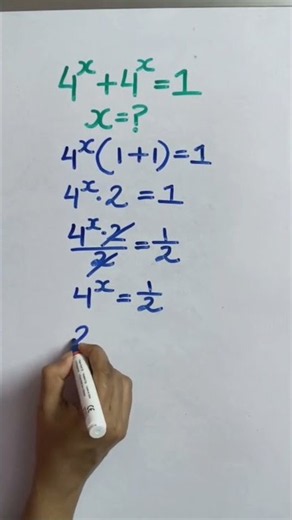 4^x + 4^x = 1
x = ?
4^x (1 + 1) = 1
4^x · 2 = 1
4^x · 2 / 2 = 1/2
4^x = 1/2
2